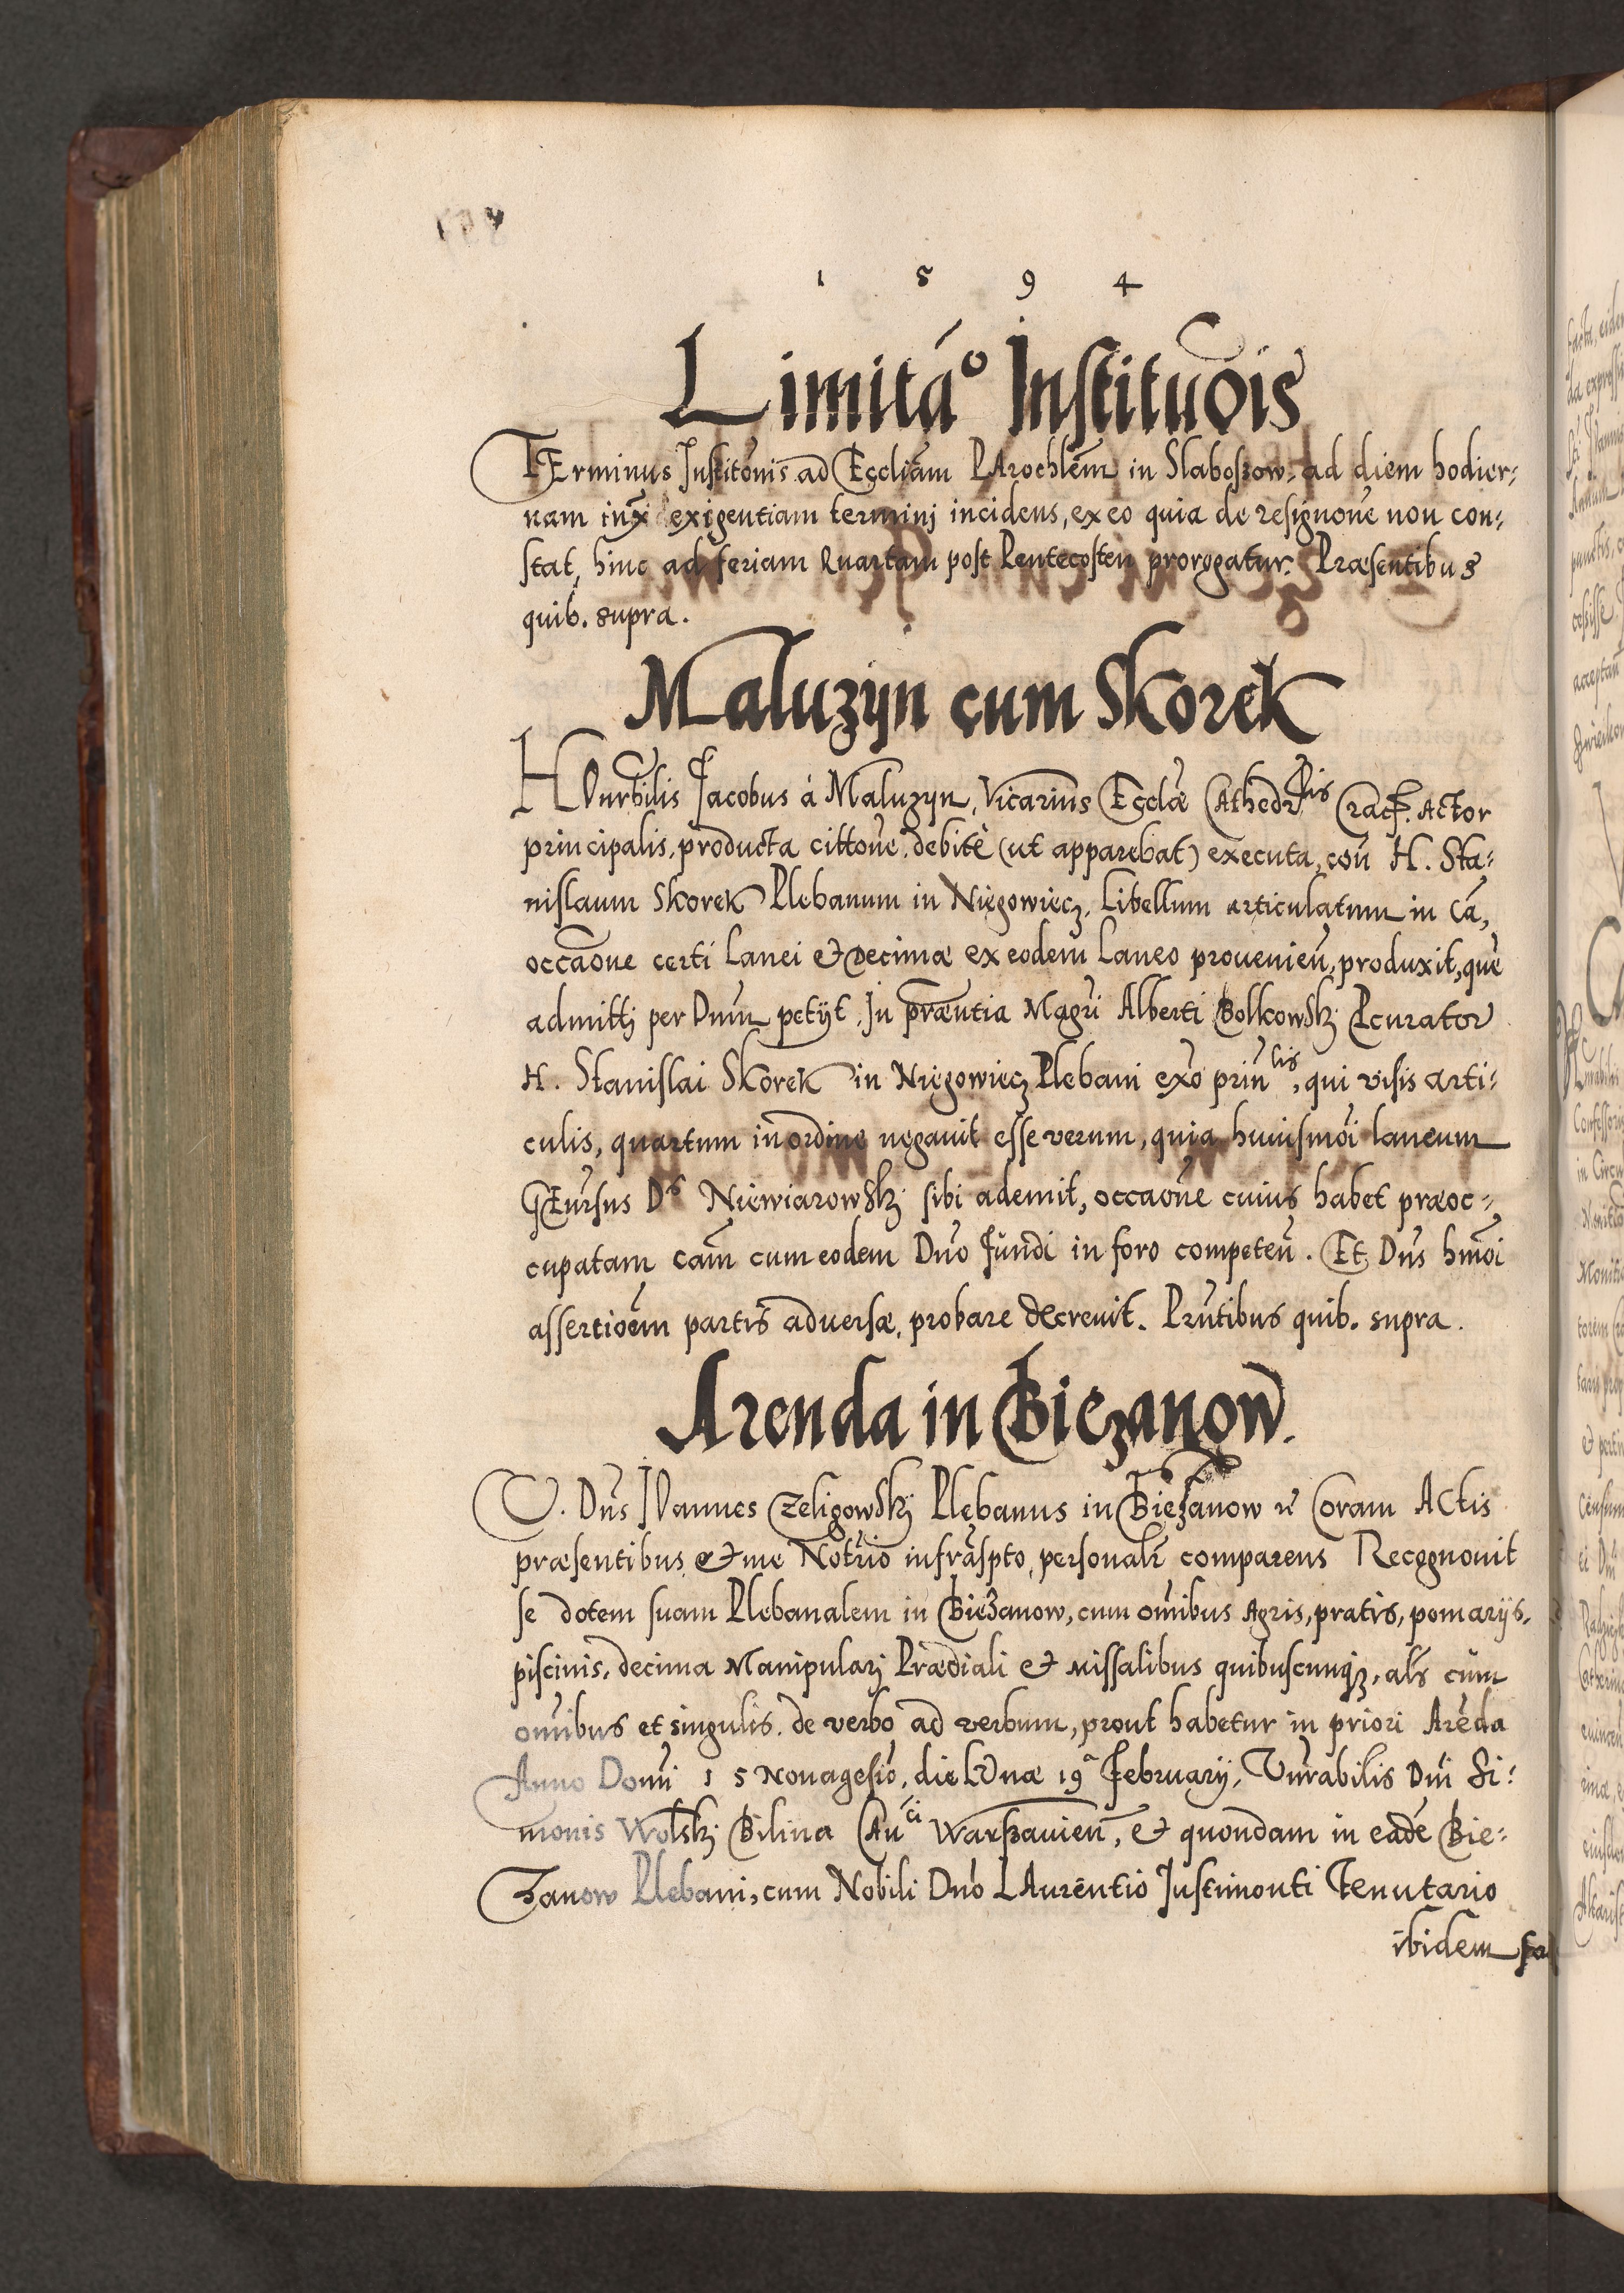 1 5 9 4
Limitao Instituõis
TErminus Institõnis ad Eccliam PArochlem in Slaboszow, ad diem hodier-
nam inxa exigentiam terminj incidens, ex eo quia de resignõne non con-
stat, hinc ad feriam Quartam post Pentecosten prorogatur. Præsentibus
quib. supra.
Maluzyn cum Skorek
HOnrbilis Jacobus à Maluzyn, Vicarius Ecclæ CAthedrlis Cracẽ. Actor
principalis, producta cittõne, debitè (ut apparebat) executa, con H. Sta-
nislaum Skorek Plebanum in Niegowiecz, Libellum articulatum in Cã,
occãone certi Lanei et Decimæ ex eodem Laneo prouenien, produxit, quẽ
admittj per Dnum petyt. In præntia Magri Alberti Bolkowskj Pcurator
H. Stanislai Skorek in Niegowiecz Plebani exõ prinlis, qui visis arti-
culis, quartum in ordine negauit esse verum, quia huiusmõi laneum
GEnrsus Ds Niewiarowskj sibi ademit, occaõne cuius habet præoc-
cupatam cam̃ cum eodem Dno fundi in foro competeñ. Et Dns hmõi
assertioẽm partis aduersæ, probare decreuit. Prñtibus quib. supra.
Arenda in Biezanow.
V. Dns IOannes Zeligowskj Plebanus in Biezanow coram Actis
præsentibus et me Notrio infraspto, personalr comparens Recognouit
se dotem suam Plebanalem in Biezanow, cum om̃ibus Agris, pratis, pomarijs,
piscinis, decima Manipularj Prædiali et Missalibus quibuscunq3, als cum
om̃ibus et singulis, de verbo ad verbum, prout habetur in priori Arẽda
Anno Domi 1 5 Nonagesio, die LUnæ 19a February, Vnrabilis Dni Si-
monis Wolskj Bilina CAnci Warszauieñ, et quondam in eadẽ Bie-
zanow Plebani, cum Nobili Dno LAurẽntio Justimonti Tenutario
ibidem